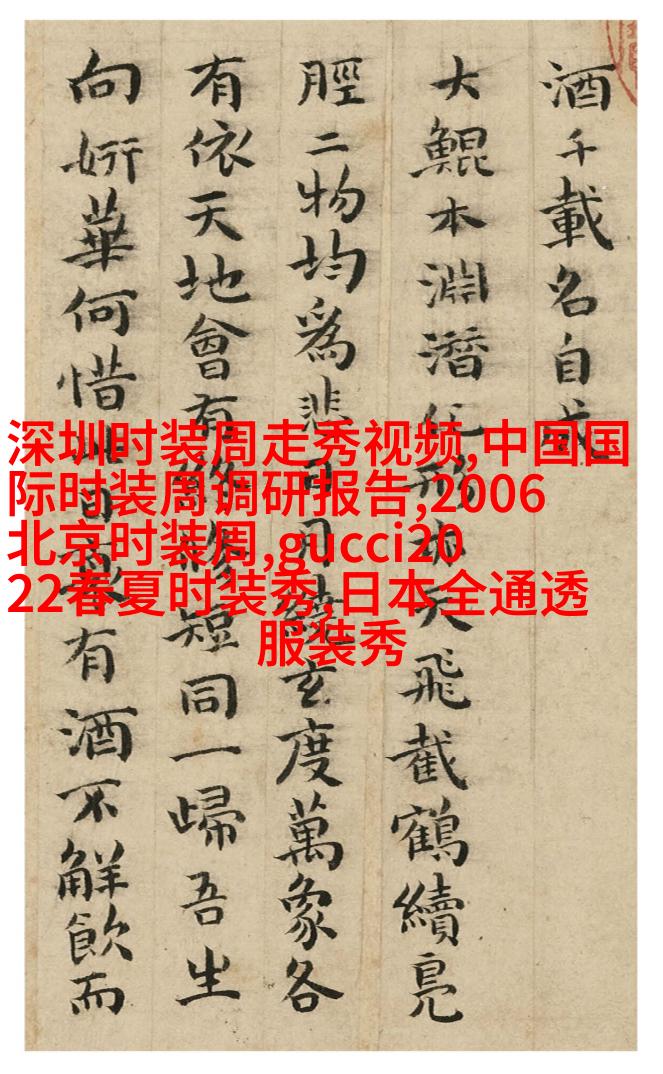 酒千載名自成
大鯤本淵潛化形功天飛截鶴續鳧
脛二物均爲悲日月玄度萬象各
有依天地會有終脩短同一歸吾生
向妍華何惜此日暮有酒不觧飲而
深圳时装周走秀视频,中国国
际时装周调研报告,2006
北京时装周,gucci20
22春夏时装秀,日本全通透
服装秀